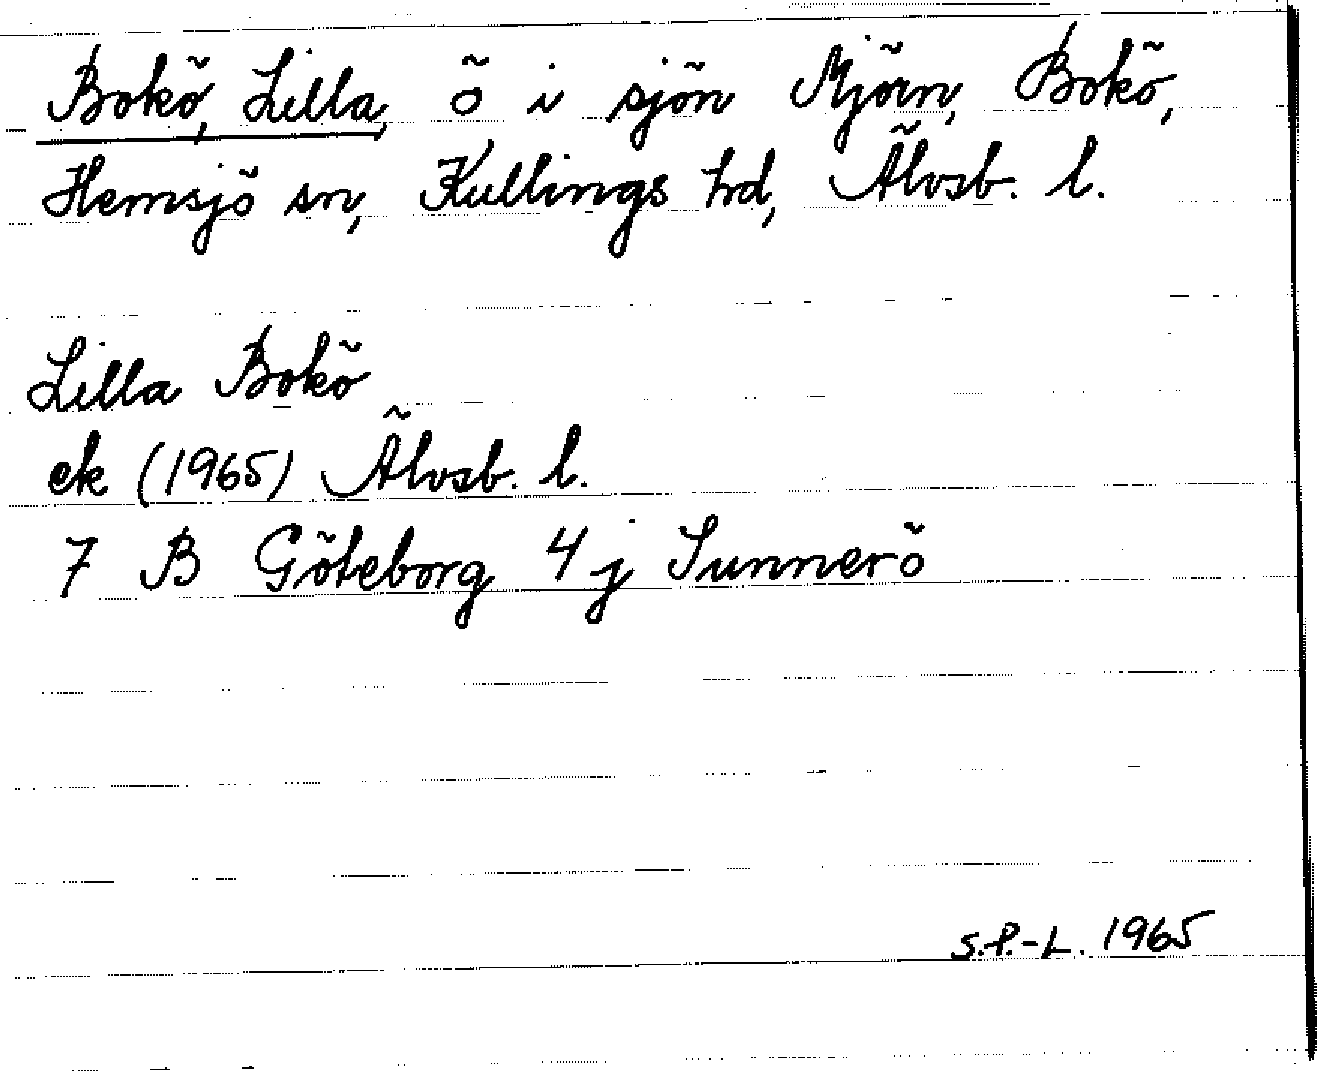 Bokö, Lilla, ö i sjön Mjörn, Bokö,
Hemsjö sn, Kullings hd, Älvsb. l.
Lilla Bokö
ek (1965) Älvsb. l.
7 B Göteborg 4 j Sunnerö
S.P.-L. 1965